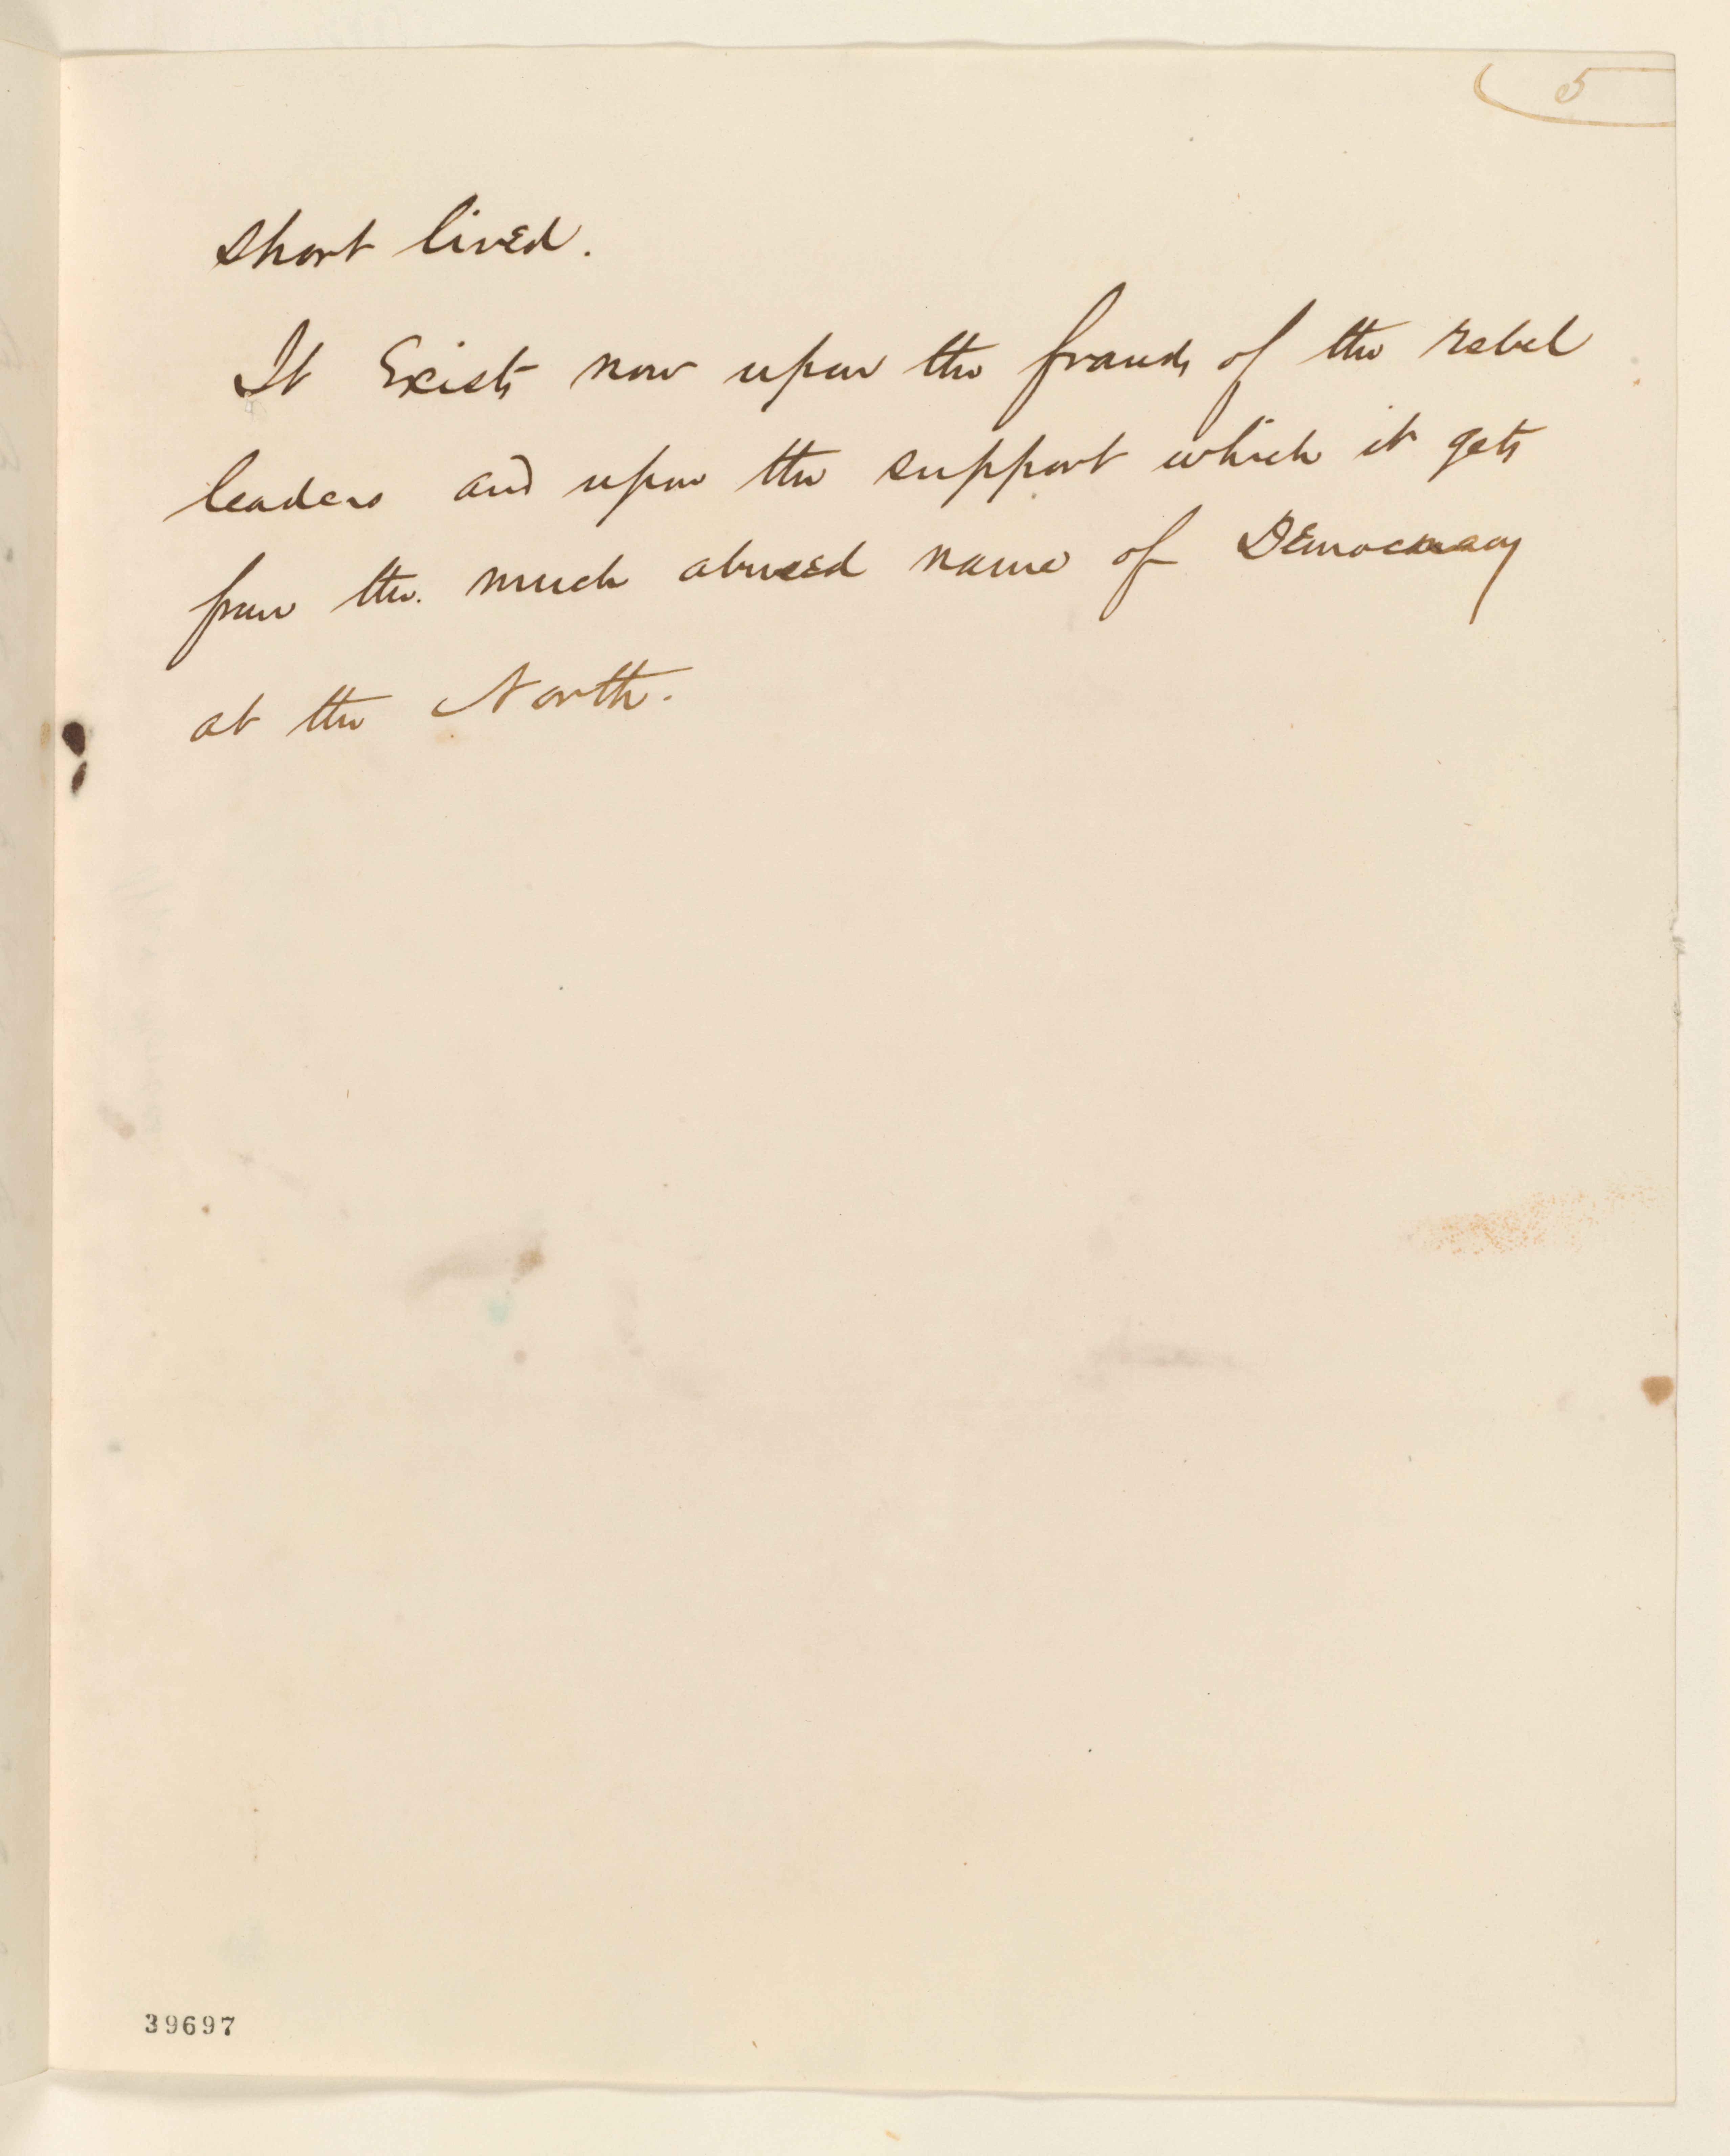 5
short lived.
It Exists now upon the frauds of the rebel
leaders and upon the support which it gets
from the much abused name of Democracy
at the North.
39697